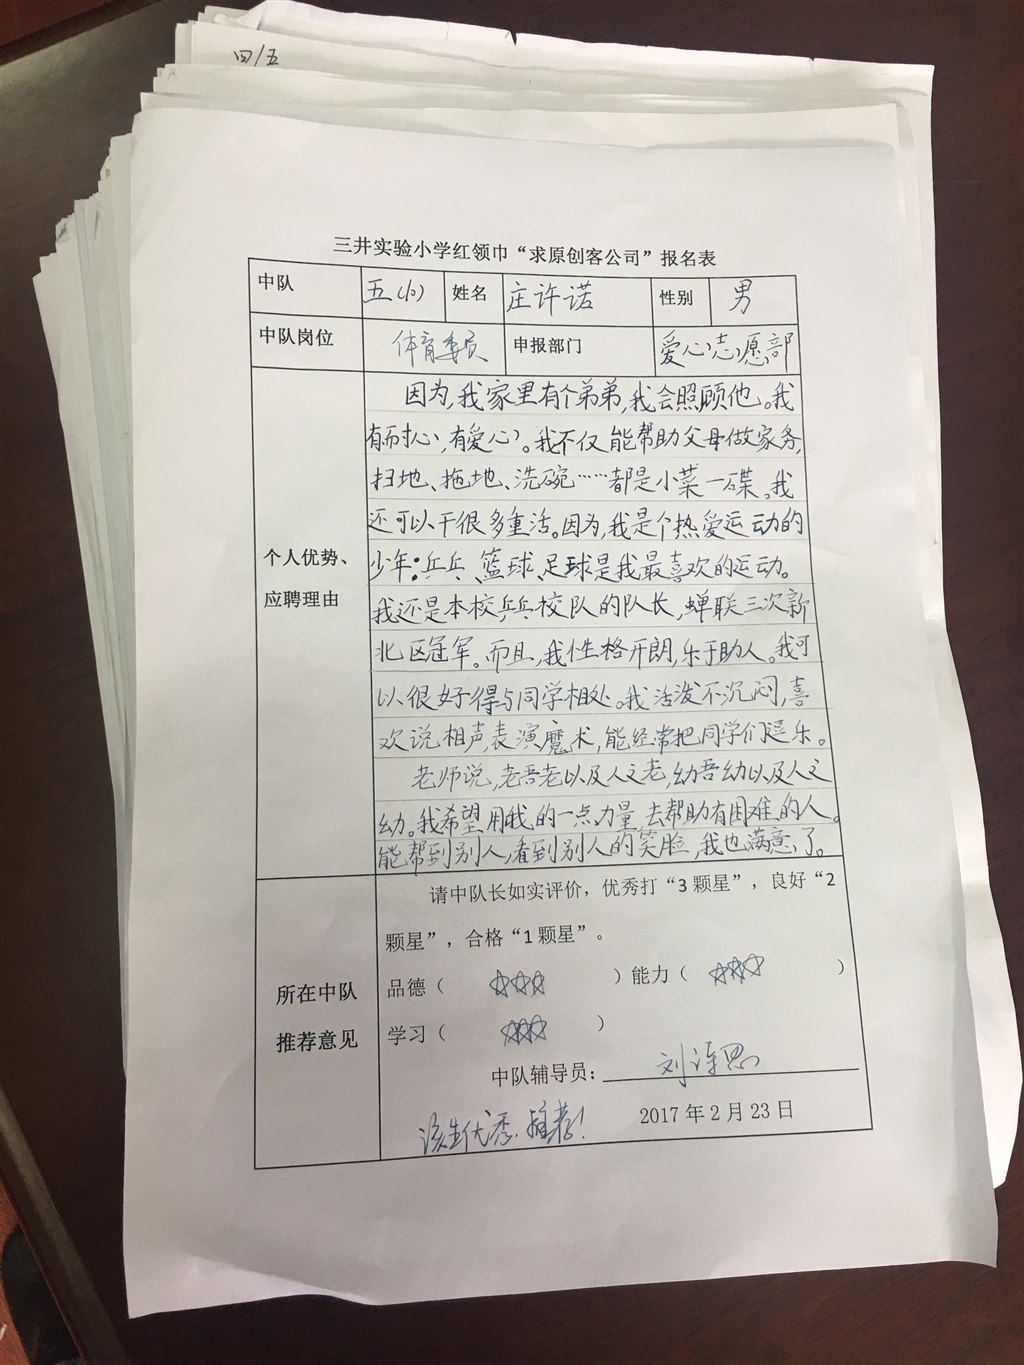 四/五
三井实验小学红领巾“求原创客公司”报名表
中队 五(10) 姓名 庄许诺 性别 男
中队岗位 体育委员 申报部门 爱心志愿部
个人优势、
应聘理由
因为,我家里有个弟弟,我会照顾他。我
有耐心,有爱心。我不仅能帮助父母做家务,
扫地、拖地、洗碗……都是小菜一碟。我
还可以干很多重活。因为,我是个热爱运动的
少年:乒乓、篮球、足球是我最喜欢的运动。
我还是本校乒乓校队的队长,蝉联三次新
北区冠军。而且,我性格开朗,乐于助人。我可
以很好得与同学相处。我活泼不沉闷,喜
欢说相声,表演魔术,能经常把同学们逗乐。
老师说,老吾老以及人之老,幼吾幼以及人之
幼。我希望用我的一点力量,去帮助有困难的人。
能帮到别人,看到别人的笑脸,我也满意了。
所在中队
推荐意见
请中队长如实评价，优秀打“3颗星”，良好“2
颗星”，合格“1颗星”。
品德（ ☆☆☆ ）能力（ ☆☆☆ ）
学习（ ☆☆☆ ）
中队辅导员：刘
该生优秀.推荐!
2017年2月23日